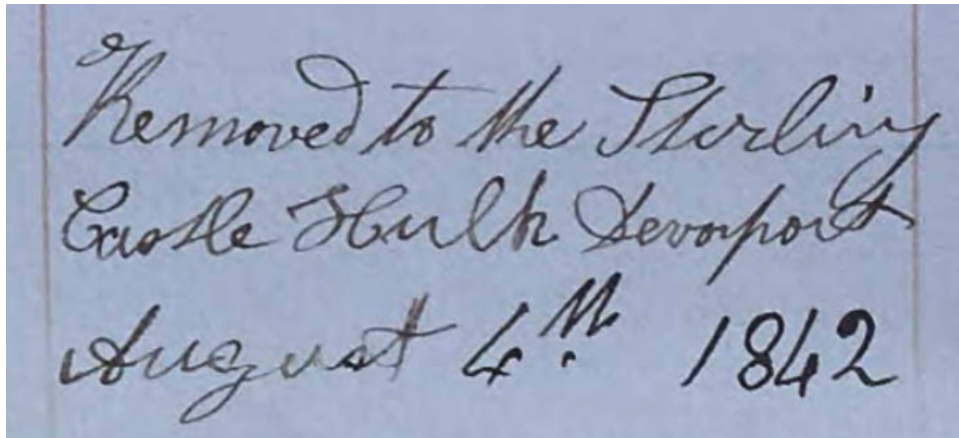 Removed to the Stirling
Castle Hulk Devonport
August 4th 1842